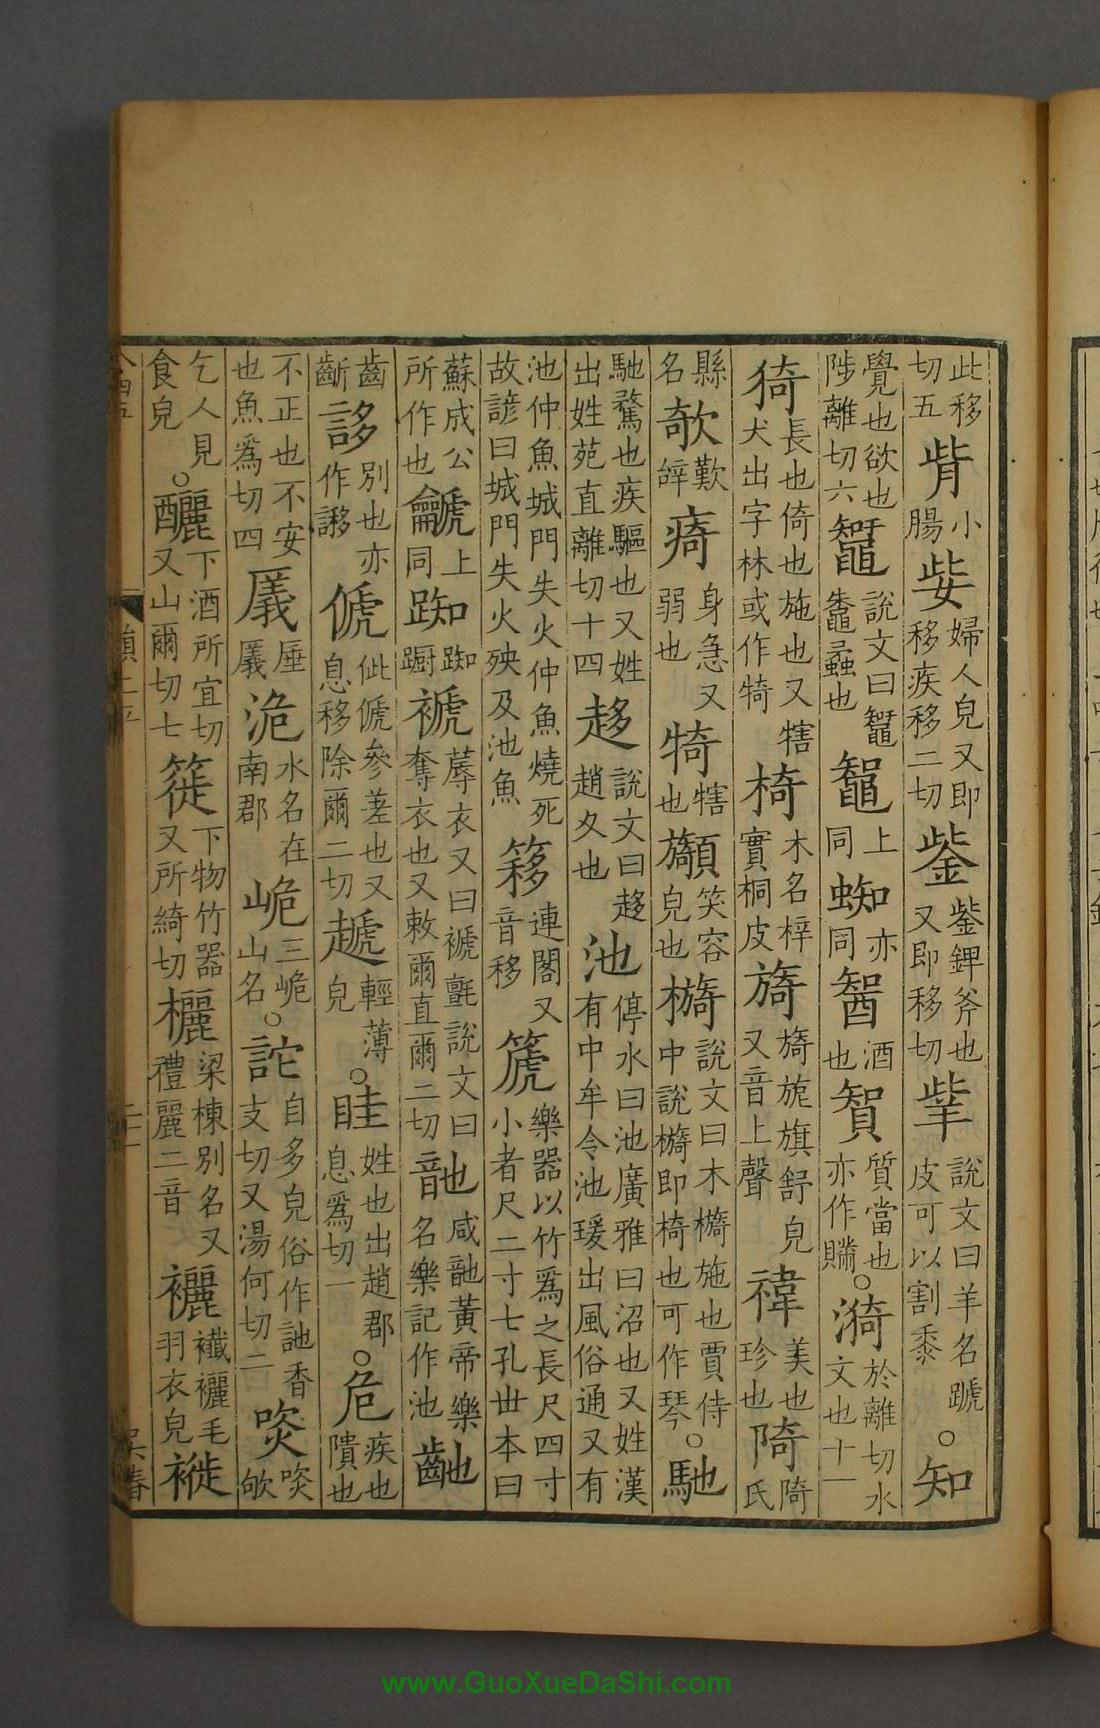 此移切五㧗小腸姕婦人皃又即移疾移二切鈭鈭錍斧也又即移切羍說文曰羊名蹏皮可以割黍○知
覺也欲也陟離切六鼅說文曰鼅鼄蟊也䵹上同蜘亦同䣽酒也䝷質當也亦作䞈○漪於離切水文也十一
猗長也倚也施也又犬出字林或作犄椅木名梓實桐皮旖旖旎旗舒皃又音上聲禕美也珍也陭陭氏
縣名欹歎辝㾨身急又弱也犄犗也䫑笑容皃也檹說文曰木檹施也賈侍中說檹即椅也可作琴○馳
馳騖也疾驅也又姓出姓苑直離切十四趍說文曰趍趙夊也池停水曰池廣雅曰沼也又姓漢有中牟令池瑗出風俗通又有
池仲魚城門失火仲魚燒死故諺曰城門失火殃及池魚簃連閣又音移篪樂器以竹爲之長尺四寸小者尺二寸七孔世本曰
蘇成公所作也䶵上同踟踟躕褫蓐衣又曰褫氈說文曰奪衣也又敕爾直爾二切䶔咸䶔黃帝樂名樂記作池𪗪
齒齗誃別也亦作謻傂傂參差也又息移除爾二切䞾輕薄皃○眭姓也出趙郡息爲切一○危疾也隤也
不正也不安也魚爲切四厜㕒洈水名在南郡峗三峗山名○詑自多皃俗作訑香支切又湯何切二㰤欨
乞人見食皃○釃下酒所宜切又山爾切七簁下物竹器又所綺切欐梁棟別名又禮麗二音襹襳襹毛羽衣皃褷
吳春
www.GuoXueDaShi.com